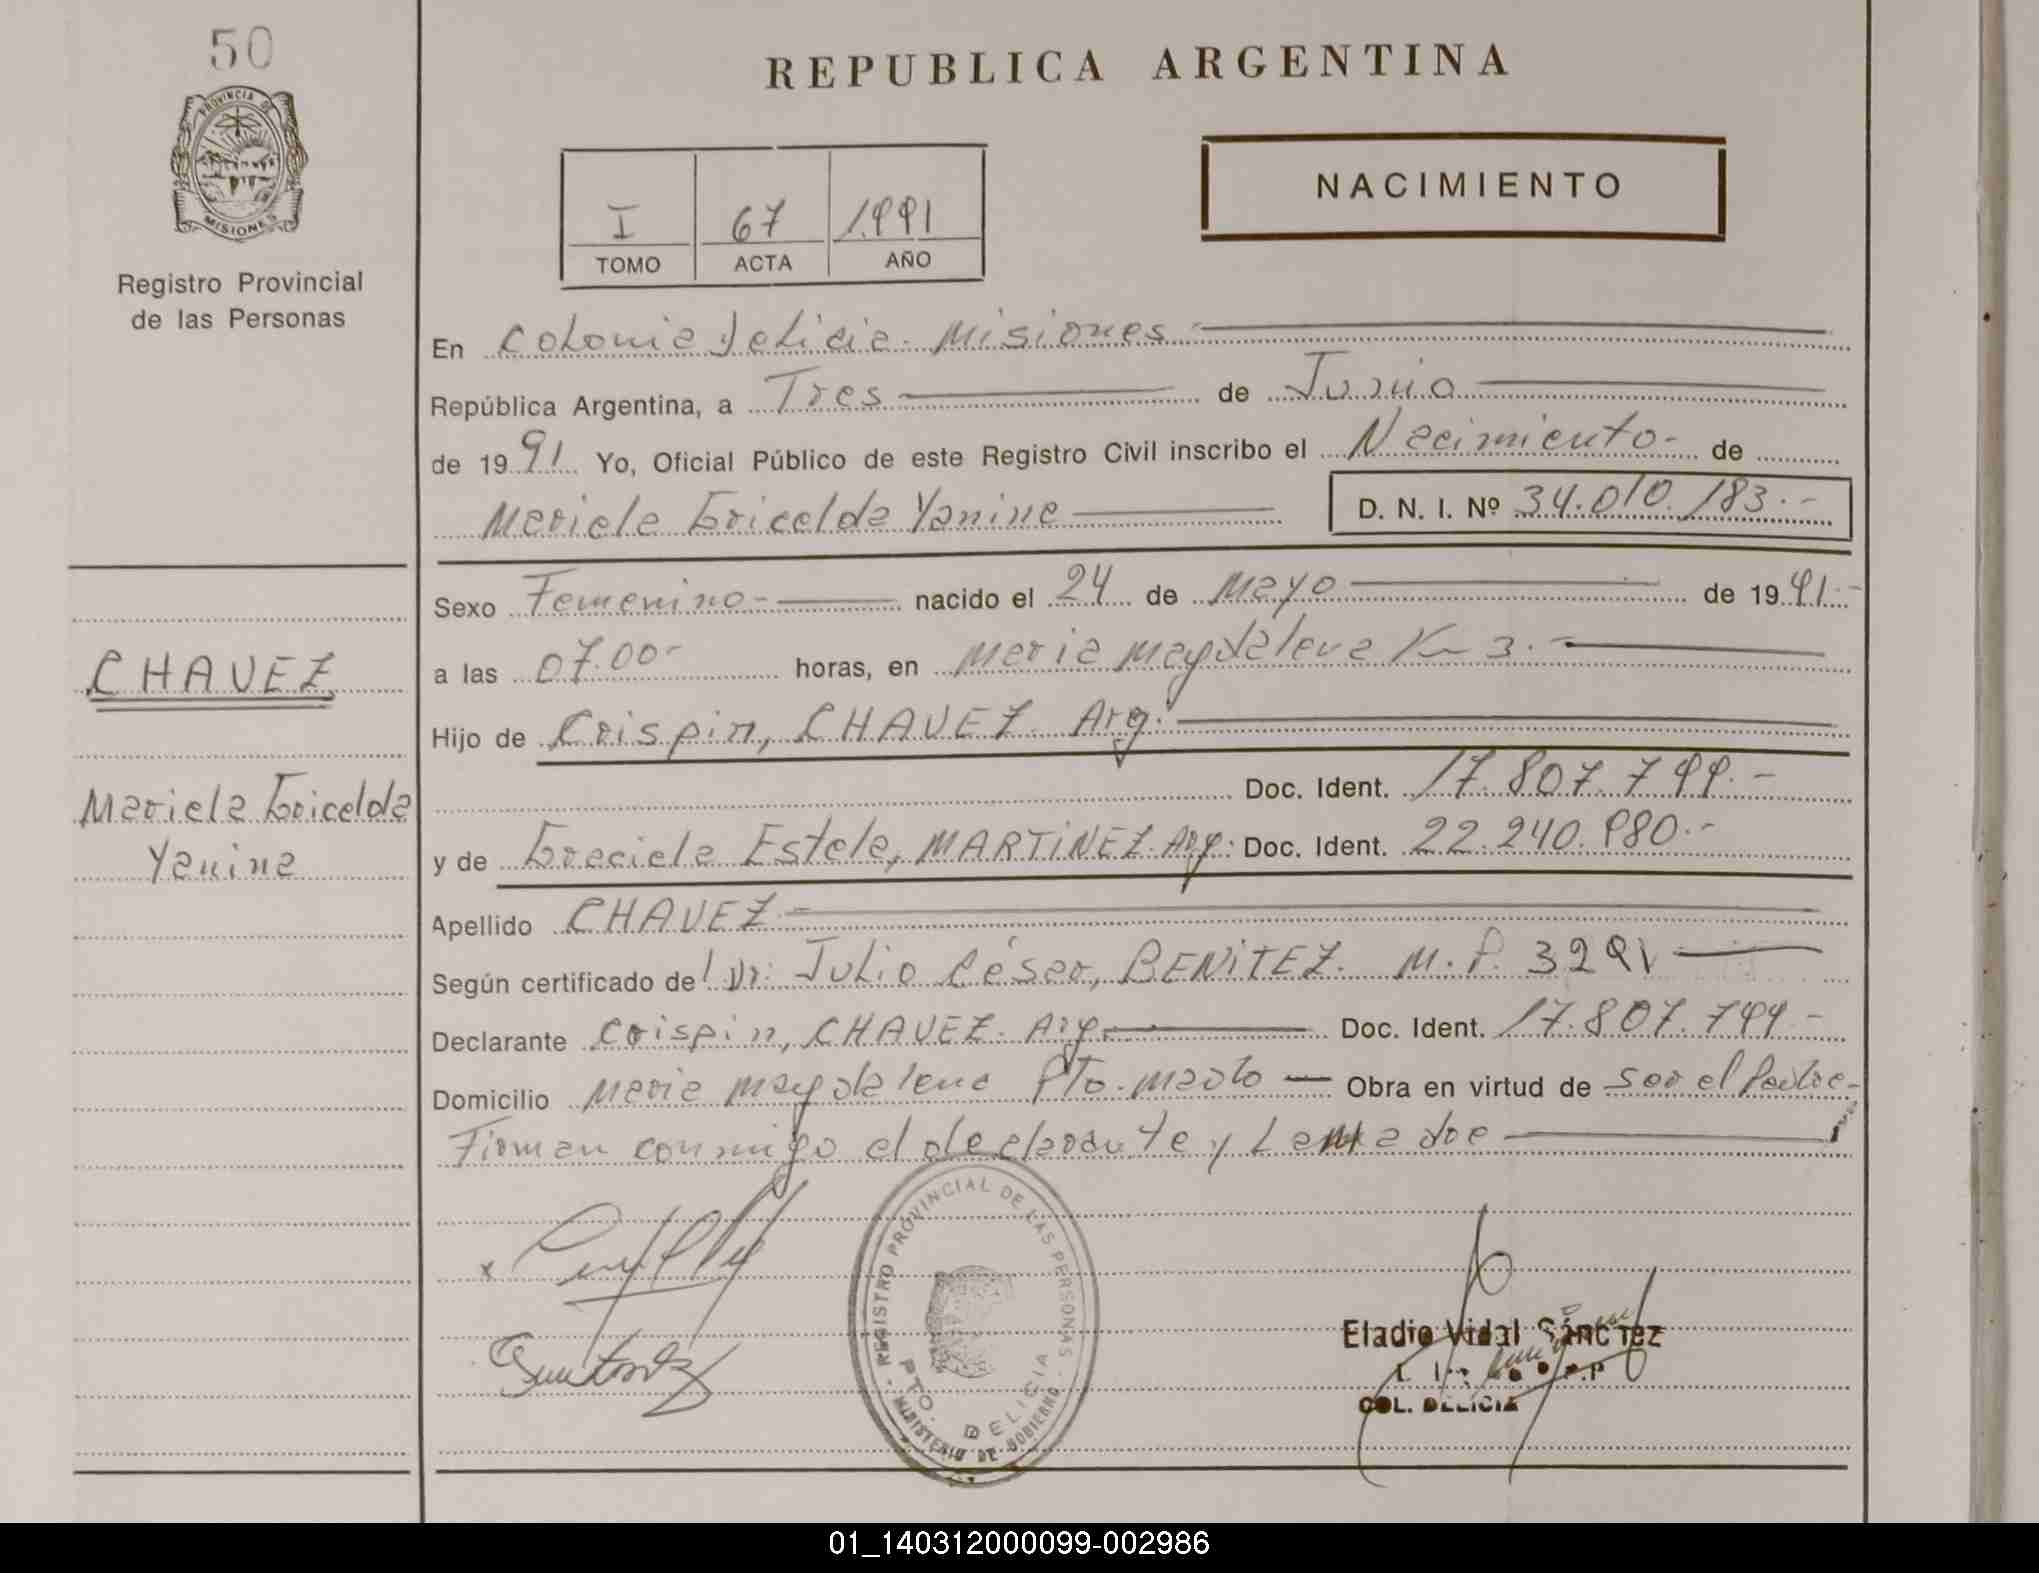 50
PROVINCIA DE
MISIONES
Registro Provincial
de las Personas
REPUBLICA ARGENTINA
I 67 1.991
TOMO ACTA AÑO
NACIMIENTO
En Colonia Delicia. Misiones.-
República Argentina, a Tres de Junio
de 1991. Yo, Oficial Público de este Registro Civil inscribo el Nacimiento- de
Mariela Gricelda Yanina D. N. I. Nº 34.010.183.-
Sexo Femenino- nacido el 24 de Mayo de 1991.-
a las 07.00- horas, en Maria Magdalena Km 3.-
Hijo de Crispin, CHAVEZ. Arg.
Doc. Ident. 17.807.799.-
y de Graciela Estela, MARTINEZ. Arg. Doc. Ident. 22.240.980.-
Apellido CHAVEZ.-
Según certificado del Dr. Julio César, BENITEZ. M.P. 3291
Declarante Crispin, CHAVEZ. Arg. Doc. Ident. 17.807.799.-
Domicilio Maria Magdalena Pto. Mado Obra en virtud de ser el Padre-
Firman conmigo el declarante y La Madre
CHAVEZ
Mariela Gricelda
Yanina
REGISTRO PROVINCIAL DE LAS PERSONAS
PTO. DELICIA
MINISTERIO DE GOBIERNO
Eladio Vidal Sánchez
COL. DELICIA
01_140312000099-002986